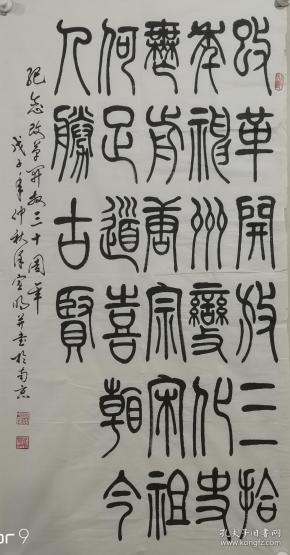 改革開放三拾
年神州變化史
無前唐宗宋祖
何足道喜今
人勝古賢
紀念改革開放三十周年
戊子年仲秋并書於南京
or 9
孔夫子旧书网
kongfz.com